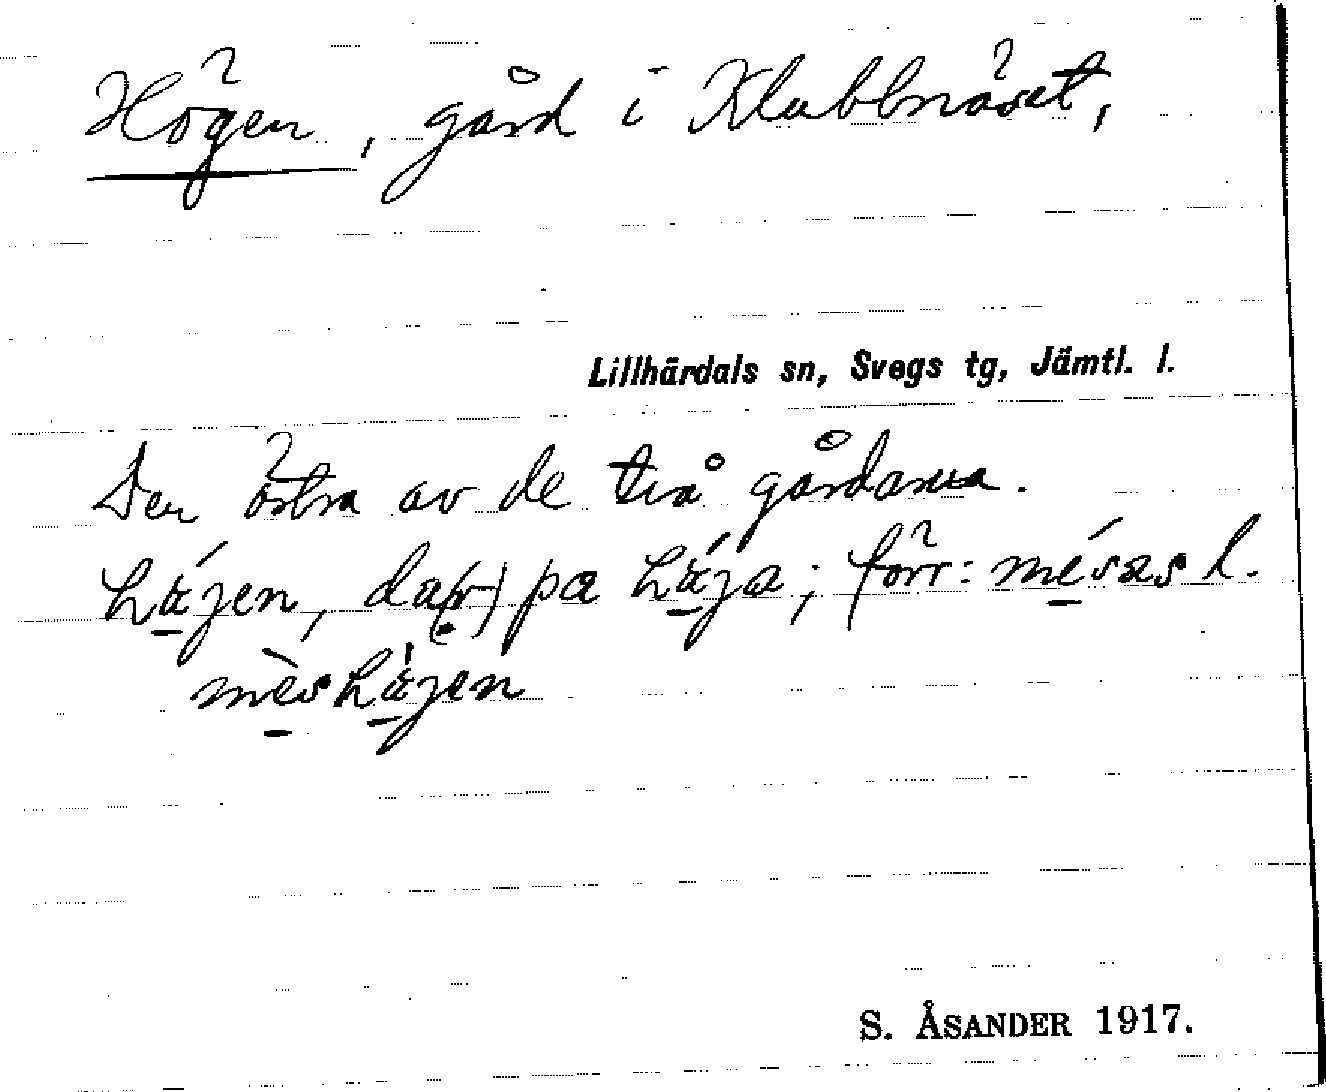 Högen, gård i Klubbnäset,
Lillhärdals sn, Svegs tg, Jämtl. l.
Den östra av de två gårdarna.
hǽjen, da(r) pa hǽja; förr: mésas l.
mèshǽjen
S. ÅSANDER 1917.